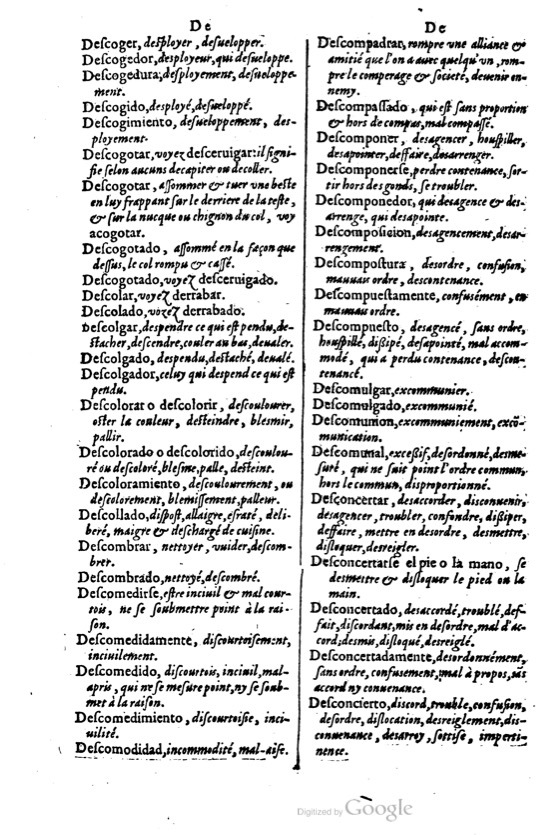 De
Descoger, desployer, desuelopper.
Descogedor, desployeur, qui desueloppe.
Descogedura, desployement, desueloppe-
ment.
Descogido, desployé, desueloppé.
Descogimiento, desueloppement, des-
ployement.
Descogotar, voyez desceruigar: il signi-
fie selon aucuns decapiter ou decoller.
Descogotar, assommer & tuer vne beste
en luy frappant sur le derriere de la teste,
& sur la nucque ou chignon du col, voy
acogotar.
Descogotado, assommé en la façon que
dessus, le col rompu & cassé.
Descogotado, voyez desceruigado.
Descolar, voyez derrabar.
Descolado, voyez derrabado.
Descolgar, despendre ce qui est pendu, de-
stacher, descendre, couler au bas, deualer.
Descolgado, despendu, destaché, deualé.
Descolgador, celuy qui despend ce qui est
pendu.
Descolorar o descolorir, descoulourer,
oster la couleur, desteindre, blesmir,
pallir.
Descolorado o descolorido, descoulou-
ré ou descoloré, blesme, palle, desteint.
Descoloramiento, descoulourement, ou
descolorement, blemissement, palleur.
Descollado, dispost, allaigre, esraté, deli-
beré, maigre & deschargé de cuisine.
Descombrar, nettoyer, vuider, descom-
brer.
Descombrado, nettoyé, descombré.
Descomedirse, estre inciuil & mal cour-
tois, ne se soubmettre point à la rai-
son.
Descomedidamente, discourtoisement,
inciuilement.
Descomedido, discourtois, inciuil, mal-
apris, qui ne se mesure point, ny se soub-
met à la raison.
Descomedimiento, discourtoisie, inci-
uilité.
Descomodidad, incommodité, mal-aise.
De
Descompadrar, rompre vne alliance &
amitié que l'on a auec quelqu'vn, rom-
pre le comperage & societé, deuenir en-
nemy.
Descompassado, qui est sans proportion
& hors de compas, mal compassé.
Descomponer, desagencer, houspiller,
desapointer, deffaire, desarrenger.
Descomponerse, perdre contenance, sor-
tir hors des gonds, se troubler.
Descomponedor, qui desagence & des-
arrenge, qui desapointe.
Descomposicion, desagencement, desar-
rengement.
Descompostura, desordre, confusion,
mauuais ordre, descontenance.
Descompuestamente, confusément, en
mauuais ordre.
Descompuesto, desagencé, sans ordre,
houspillé, dissipé, desapointé, mal accom-
modé, qui a perdu contenance, descon-
tenancé.
Descomulgar, excommunier.
Descomulgado, excommunié.
Descomunion, excommuniement, excõ-
munication.
Descomunal, excessif, desordonné, desme-
suré, qui ne suit point l'ordre commun,
hors le commun, disproportionné.
Desconcertar, desaccorder, disconuenir,
desagencer, troubler, confondre, dissiper,
deffaire, mettre en desordre, desmettre,
disloquer, desreigler.
Desconcertarse el pie o la mano, se
desmettre & disloquer le pied ou la
main.
Desconcertado, desaccordé, troublé, def-
fait, discordant, mis en desordre, mal d'ac-
cord, desmis, disloqué, desreiglé.
Desconcertadamente, desordonnément,
sans ordre, confusement, mal à propos, sãs
accord ny conuenance.
Desconcierto, discord, trouble, confusion,
desordre, dislocation, desreiglement, dis-
conuenance, desarroy, sottise, imperti-
nence.
Digitized by Google